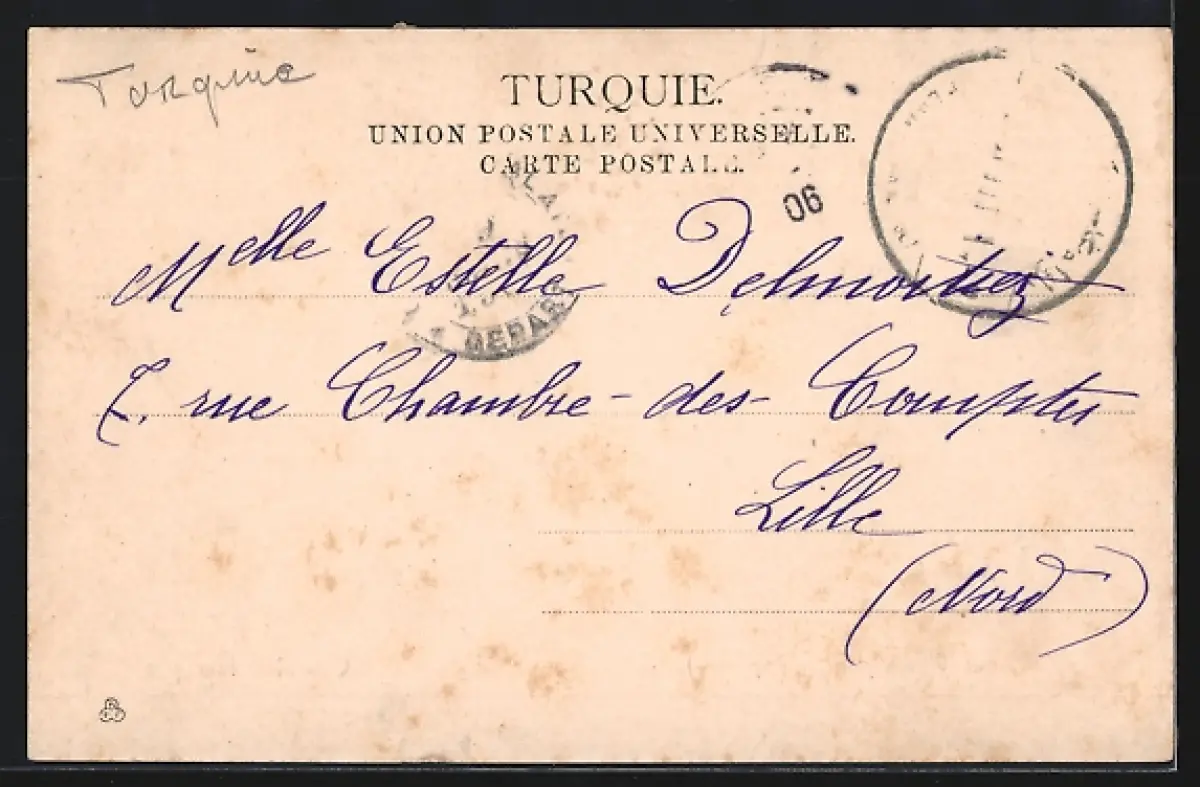 Turquie
TURQUIE.
UNION POSTALE UNIVERSELLE.
CARTE POSTALE.
06
Melle Estelle Delmotiez
7. rue Chambre-des-Comptes
Lille
(Nord)